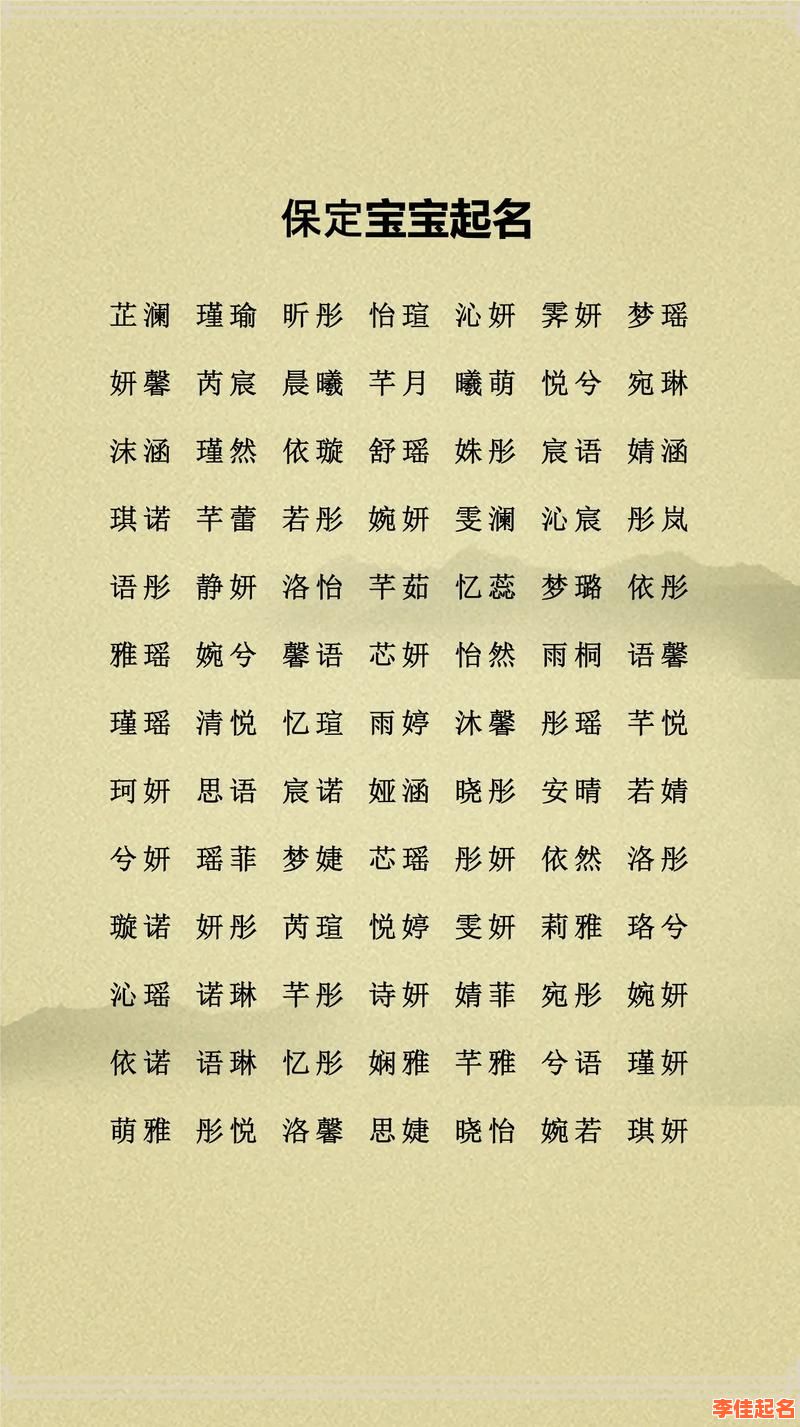 保定宝宝起名
芷澜 瑾瑜 昕彤 怡瑄 沁妍 霁妍 梦瑶
妍馨 芮宸 晨曦 芊月 曦萌 悦兮 宛琳
沫涵 瑾然 依璇 舒瑶 姝彤 宸语 婧涵
琪诺 芊蕾 若彤 婉妍 雯澜 沁宸 彤岚
语彤 静妍 洛怡 芊茹 忆蕊 梦璐 依彤
雅瑶 婉兮 馨语 芯妍 怡然 雨桐 语馨
瑾瑶 清悦 忆瑄 雨婷 沐馨 彤瑶 芊悦
珂妍 思语 宸诺 娅涵 晓彤 安晴 若婧
兮妍 瑶菲 梦婕 芯瑶 彤妍 依然 洛彤
璇诺 妍彤 芮瑄 悦婷 雯妍 莉雅 珞兮
沁瑶 诺琳 芊彤 诗妍 婧菲 宛彤 婉妍
依诺 语琳 忆彤 娴雅 芊雅 兮语 瑾妍
萌雅 彤悦 洛馨 思婕 晓怡 婉若 琪妍
李佳起名